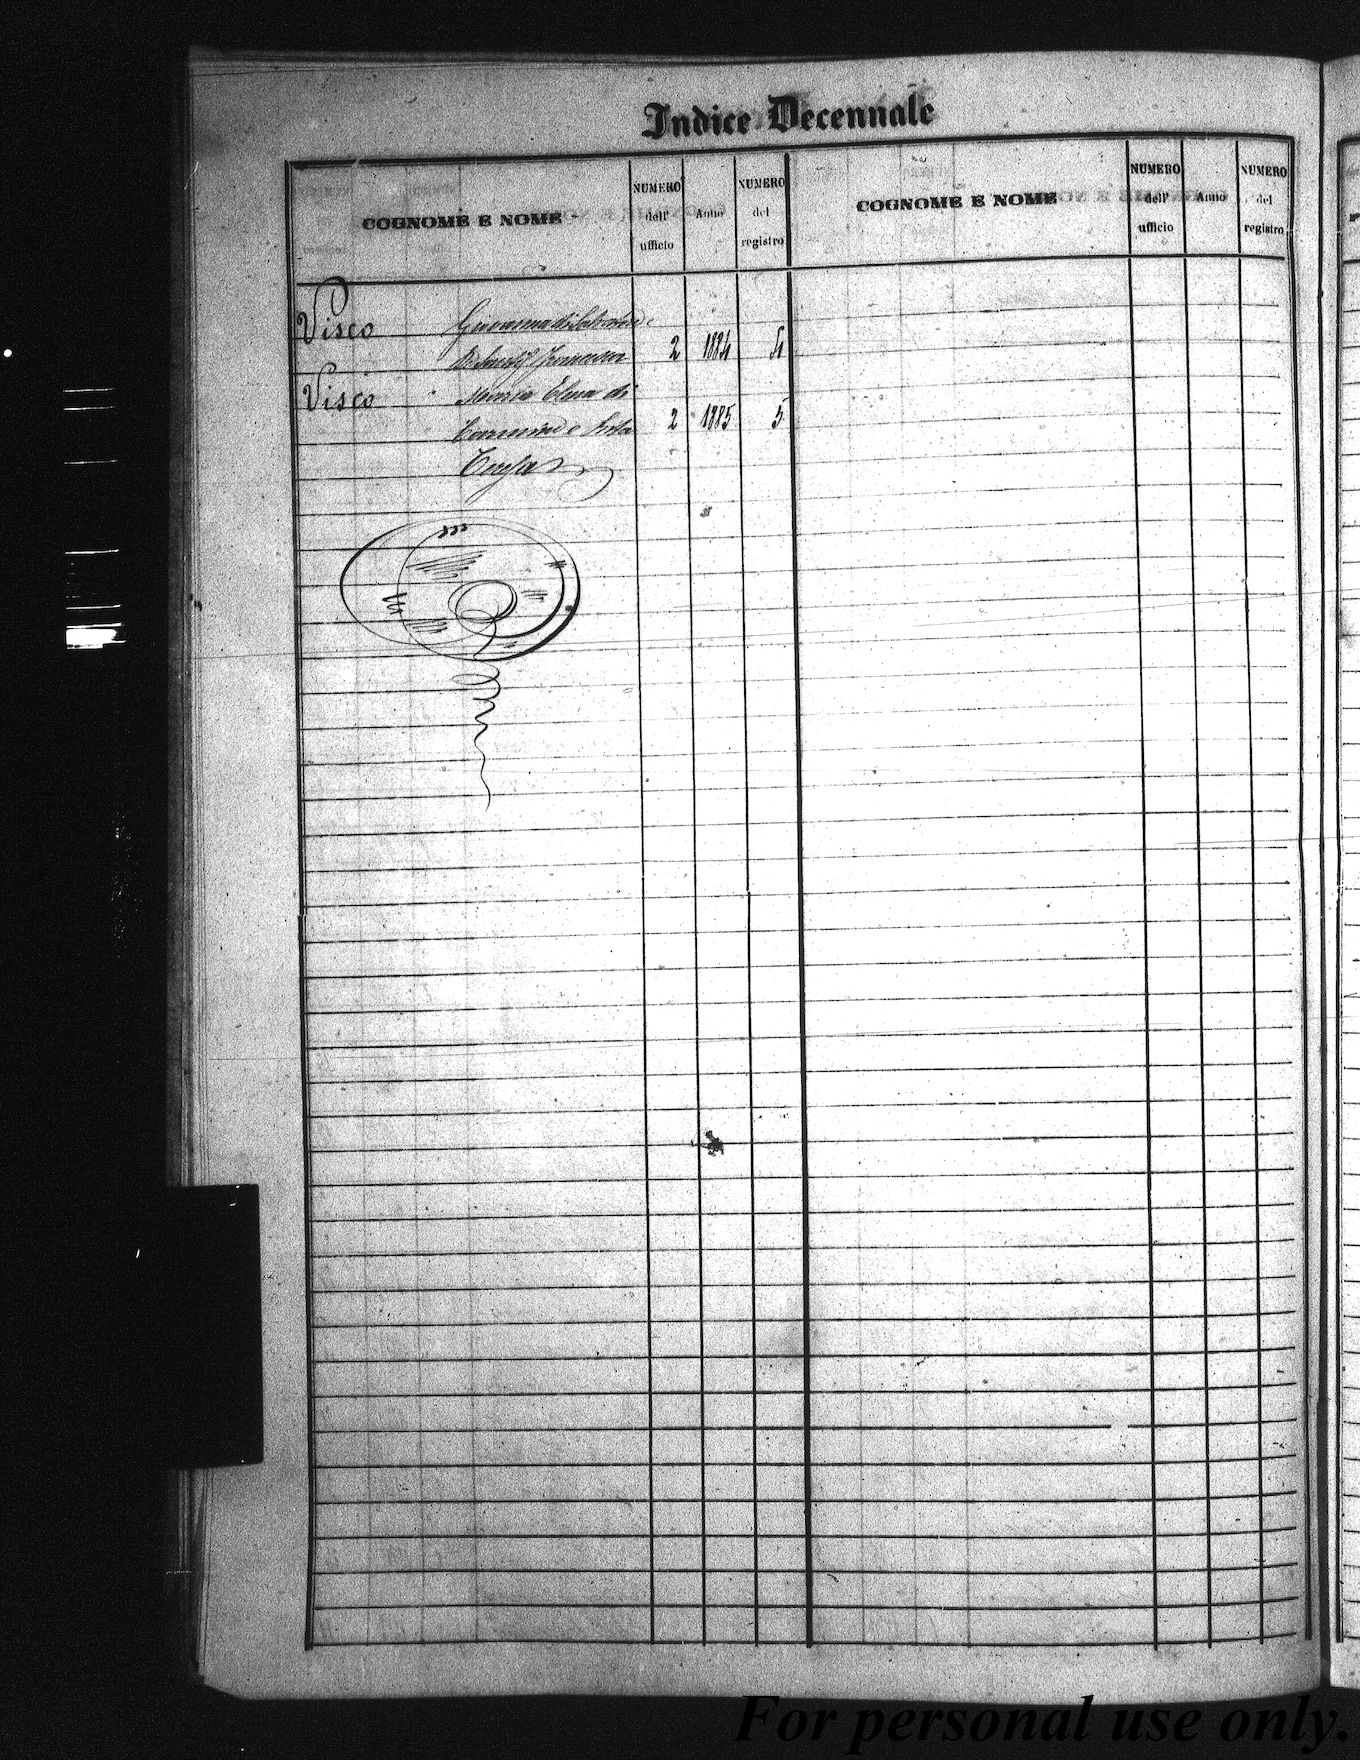 Indice Decennale
COGNOME E NOME
NUMERO dell' ufficio
Anno
NUMERO del registro
COGNOME E NOME
NUMERO dell' ufficio
Anno
NUMERO del registro
Visco Giovanna di
2 1884 4
Visco Maria Elena di
Carmine e 2 1885 5
For personal use only.